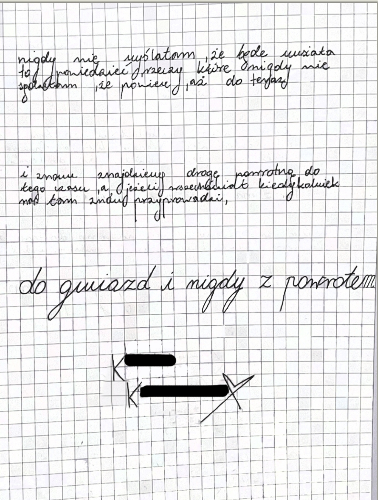 nigdy nie myślałam, że będę musiała
to powiedzieć, rzeczy które nigdy nie
że powiem, aż do teraz
i znowu znajdziemy drogę powrotną do
tego czasu, a jeżeli wszechświat kiedykolwiek
nas tam znowu przyprowadzi,
do gwiazd i nigdy z powrotem
K
K